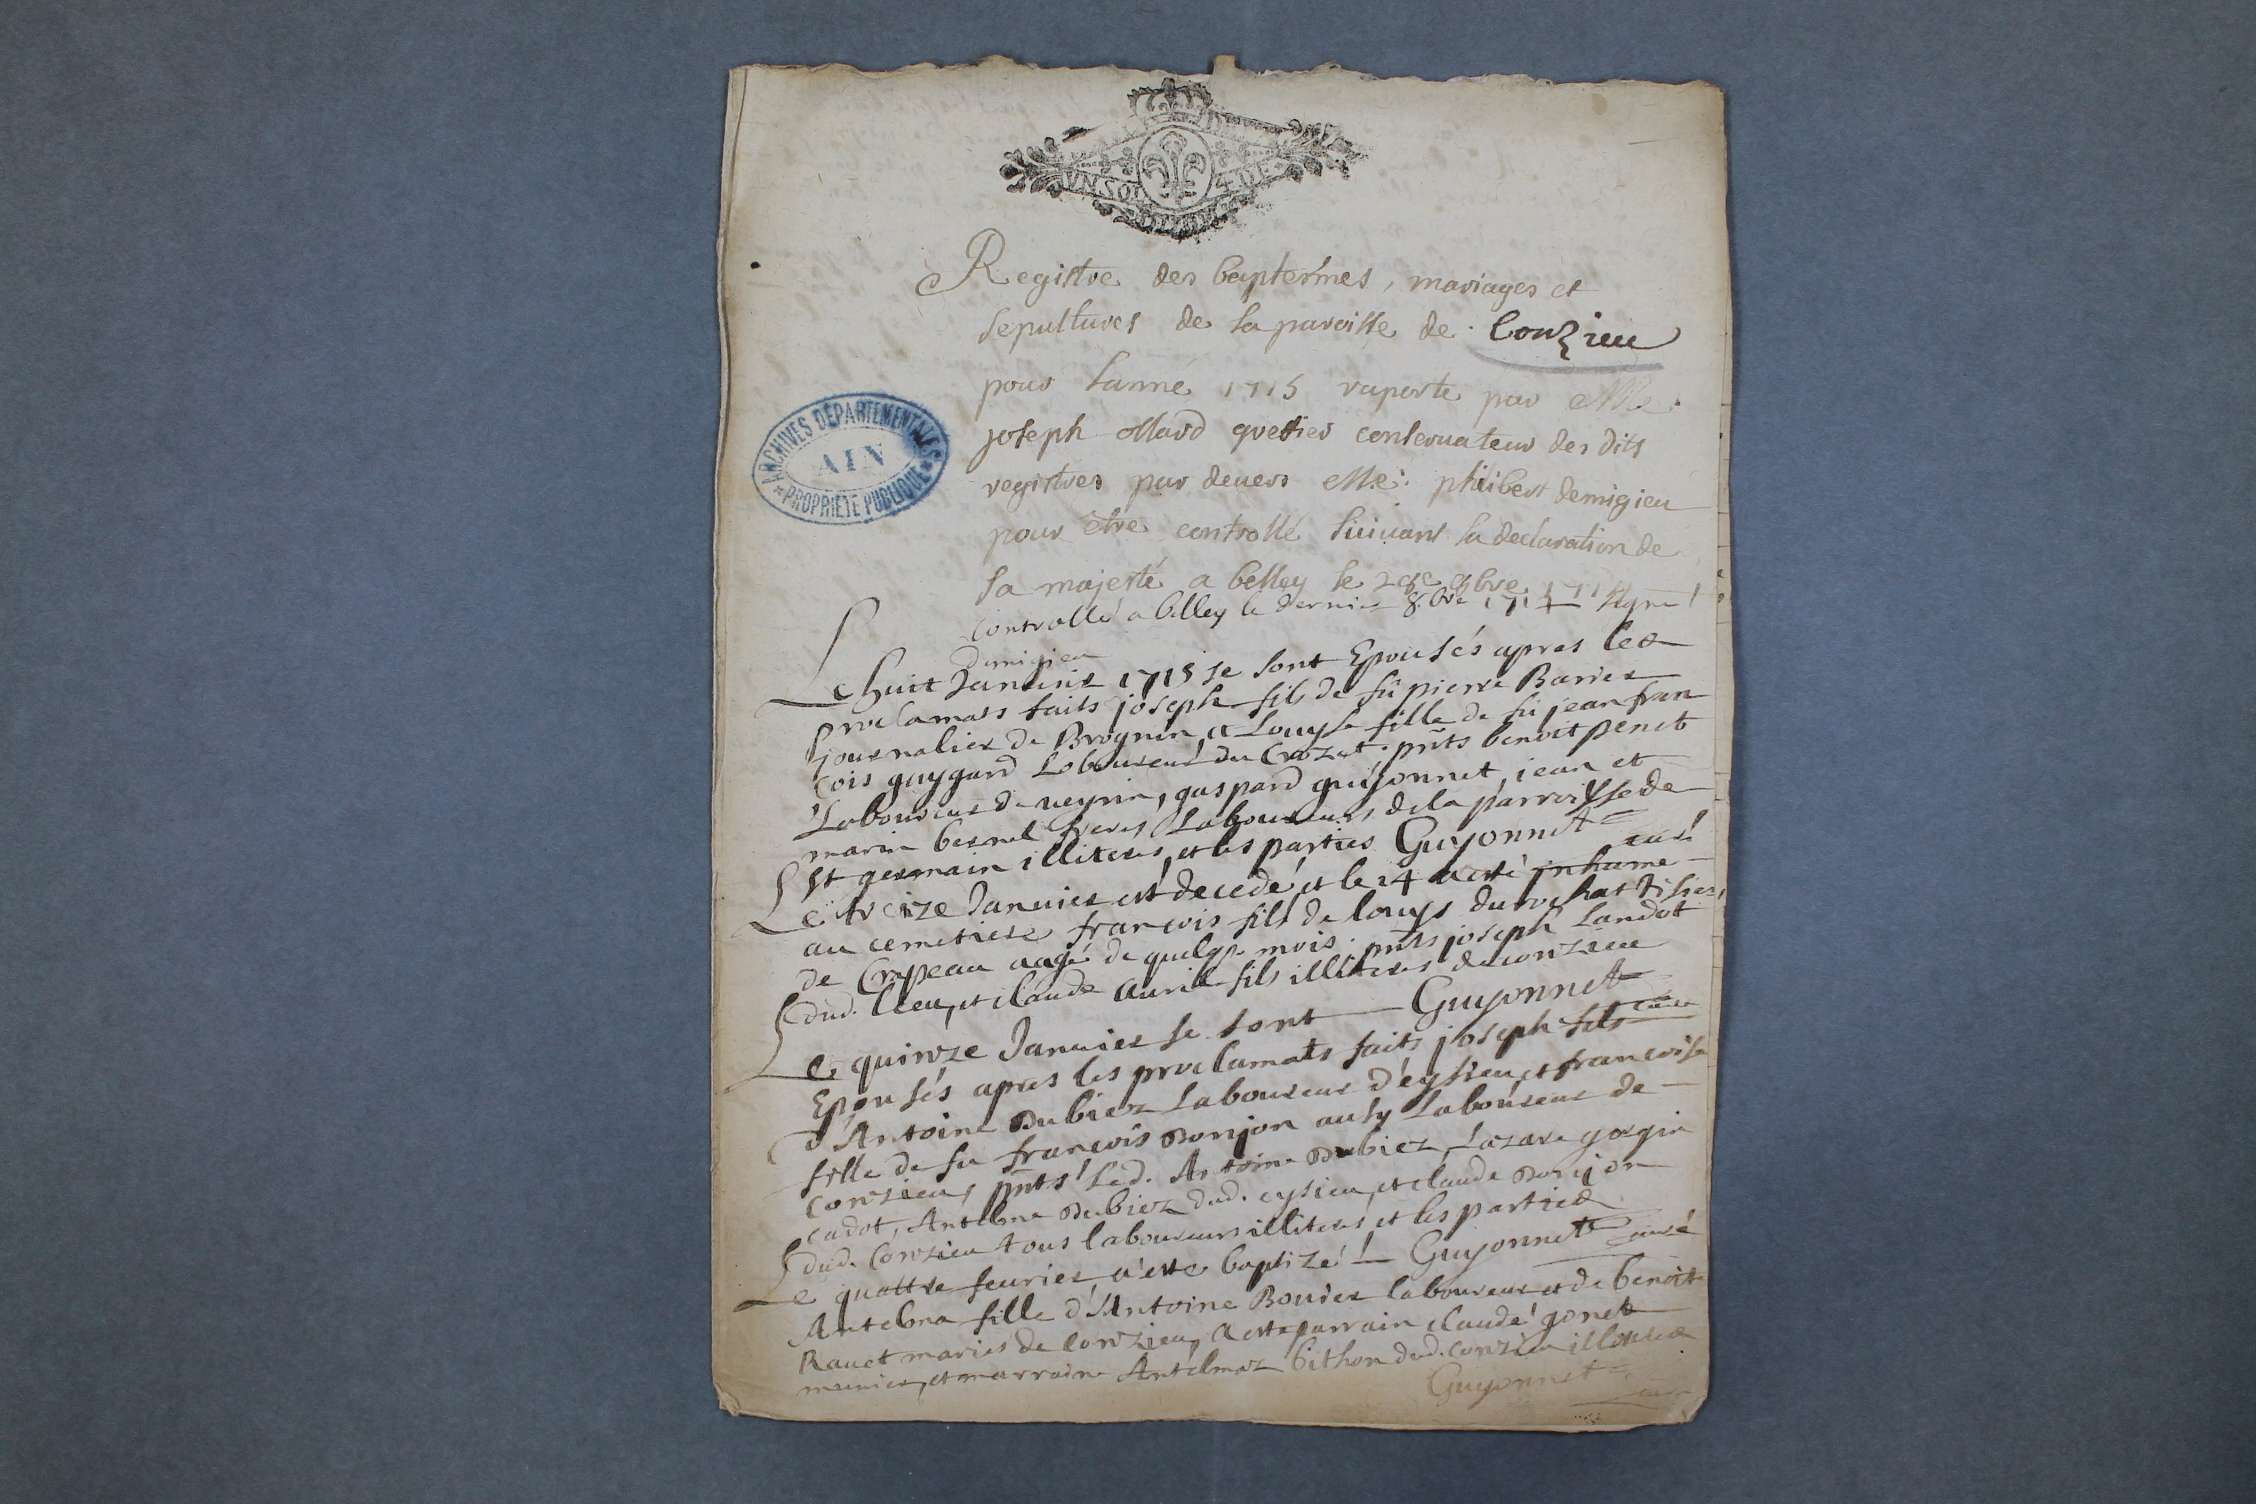 UN SOL 4 DE
Registre des baptesmes, mariages et
sepultures de la paroisse de Conzieu
pour lanné 1715 raporte par Me
joseph Mard greffier conservateur des dits
registres par devers Me philibert demigieu
pour être controllé suivant la declaration de
sa majesté a belley le 9bre 1714
controllé a belley le dernier 8.bre 1714 signe
Demigieu
ARCHIVES DÉPARTEMENTALES
AIN
PROPRIÉTÉ PUBLIQUE
Le huit Januier 1715 se sont Epousés apres les
proclamats faits joseph fils de fû pierre Barier
journalier de Brognin et Louyse fille de fû jean fran
cois guygard Laboureur du Crozet, pnts benoit penet
Laboureur de veyrin, gaspard guyonnet, jean et
marin bernel freres Laboureurs de la parroisse de
St germain illiteres, et les parties Guyonnet curé
Le treize Januier est decedé, et le 14 a esté inhumé
au cemetiere françois fils de louys durochat
de Crapeau aagé de quelqs mois, pnts joseph Landot
dud. lieu, et claude auril fils illiteres de conzieu
Guyonnet curé
Le quinze Januier se sont
Epousés apres les proclamats faits joseph fils
d'Antoine Dubiez Laboureur d'eysieu, et francoise
fille de fu françois Donjon ausy Laboureur de
Conzieu, pnts led. Antoine Dubiez, Lazare gorgin
cadot, Antelme Dubiez dud. eysieu, et claude Donjon
dud. Conzieu tous laboureurs illiteres, et les parties
Guyonnet curé
Le quattre feurier a esté baptizé
Antelma fille d'Antoine Bouvier laboureur et de benoite
Rauet mariés de Conzieu, a esté parrain claude gonet
meunier, et marraine Antelmaz bithon dud. conzieu illiteres
Guyonnet
curé